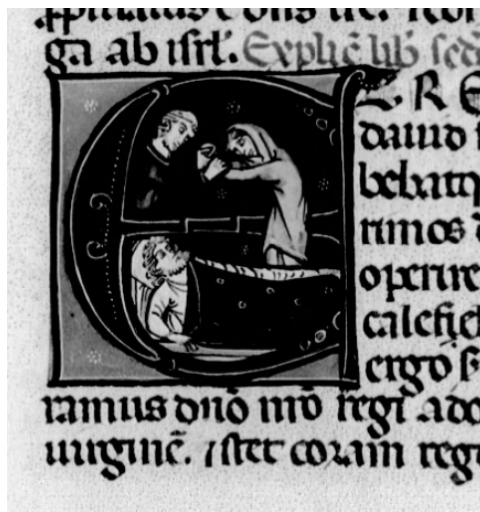 ga ab isrl̃. Explic̃ lib̃ sed̃
E R E
dauid
bebatq
rimos d
operire
calefie
ergo s̃
ramus dño nr̃o regi ado
uirginẽ. ⁊ stet coram regi